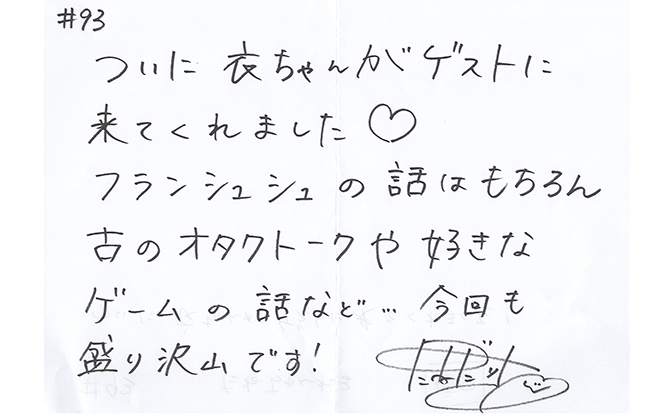 #93
ついに衣ちゃんがゲストに
来てくれました♡
フランシュシュの話はもちろん
古のオタクトークや好きな
ゲームの話など…今回も
盛り沢山です!